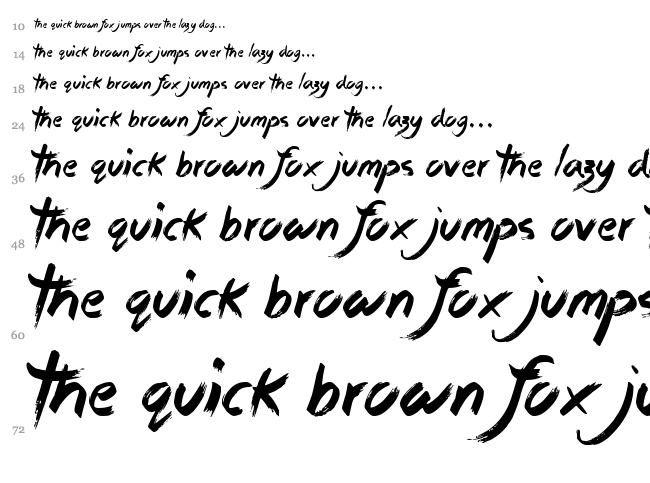 10 the quick brown fox jumps over the lazy dog...
14 the quick brown fox jumps over the lazy dog...
18 the quick brown fox jumps over the lazy dog...
24 the quick brown fox jumps over the lazy dog...
36 the quick brown fox jumps over the lazy d
48 the quick brown fox jumps over
60 the quick brown fox jumps
72 the quick brown fox ju